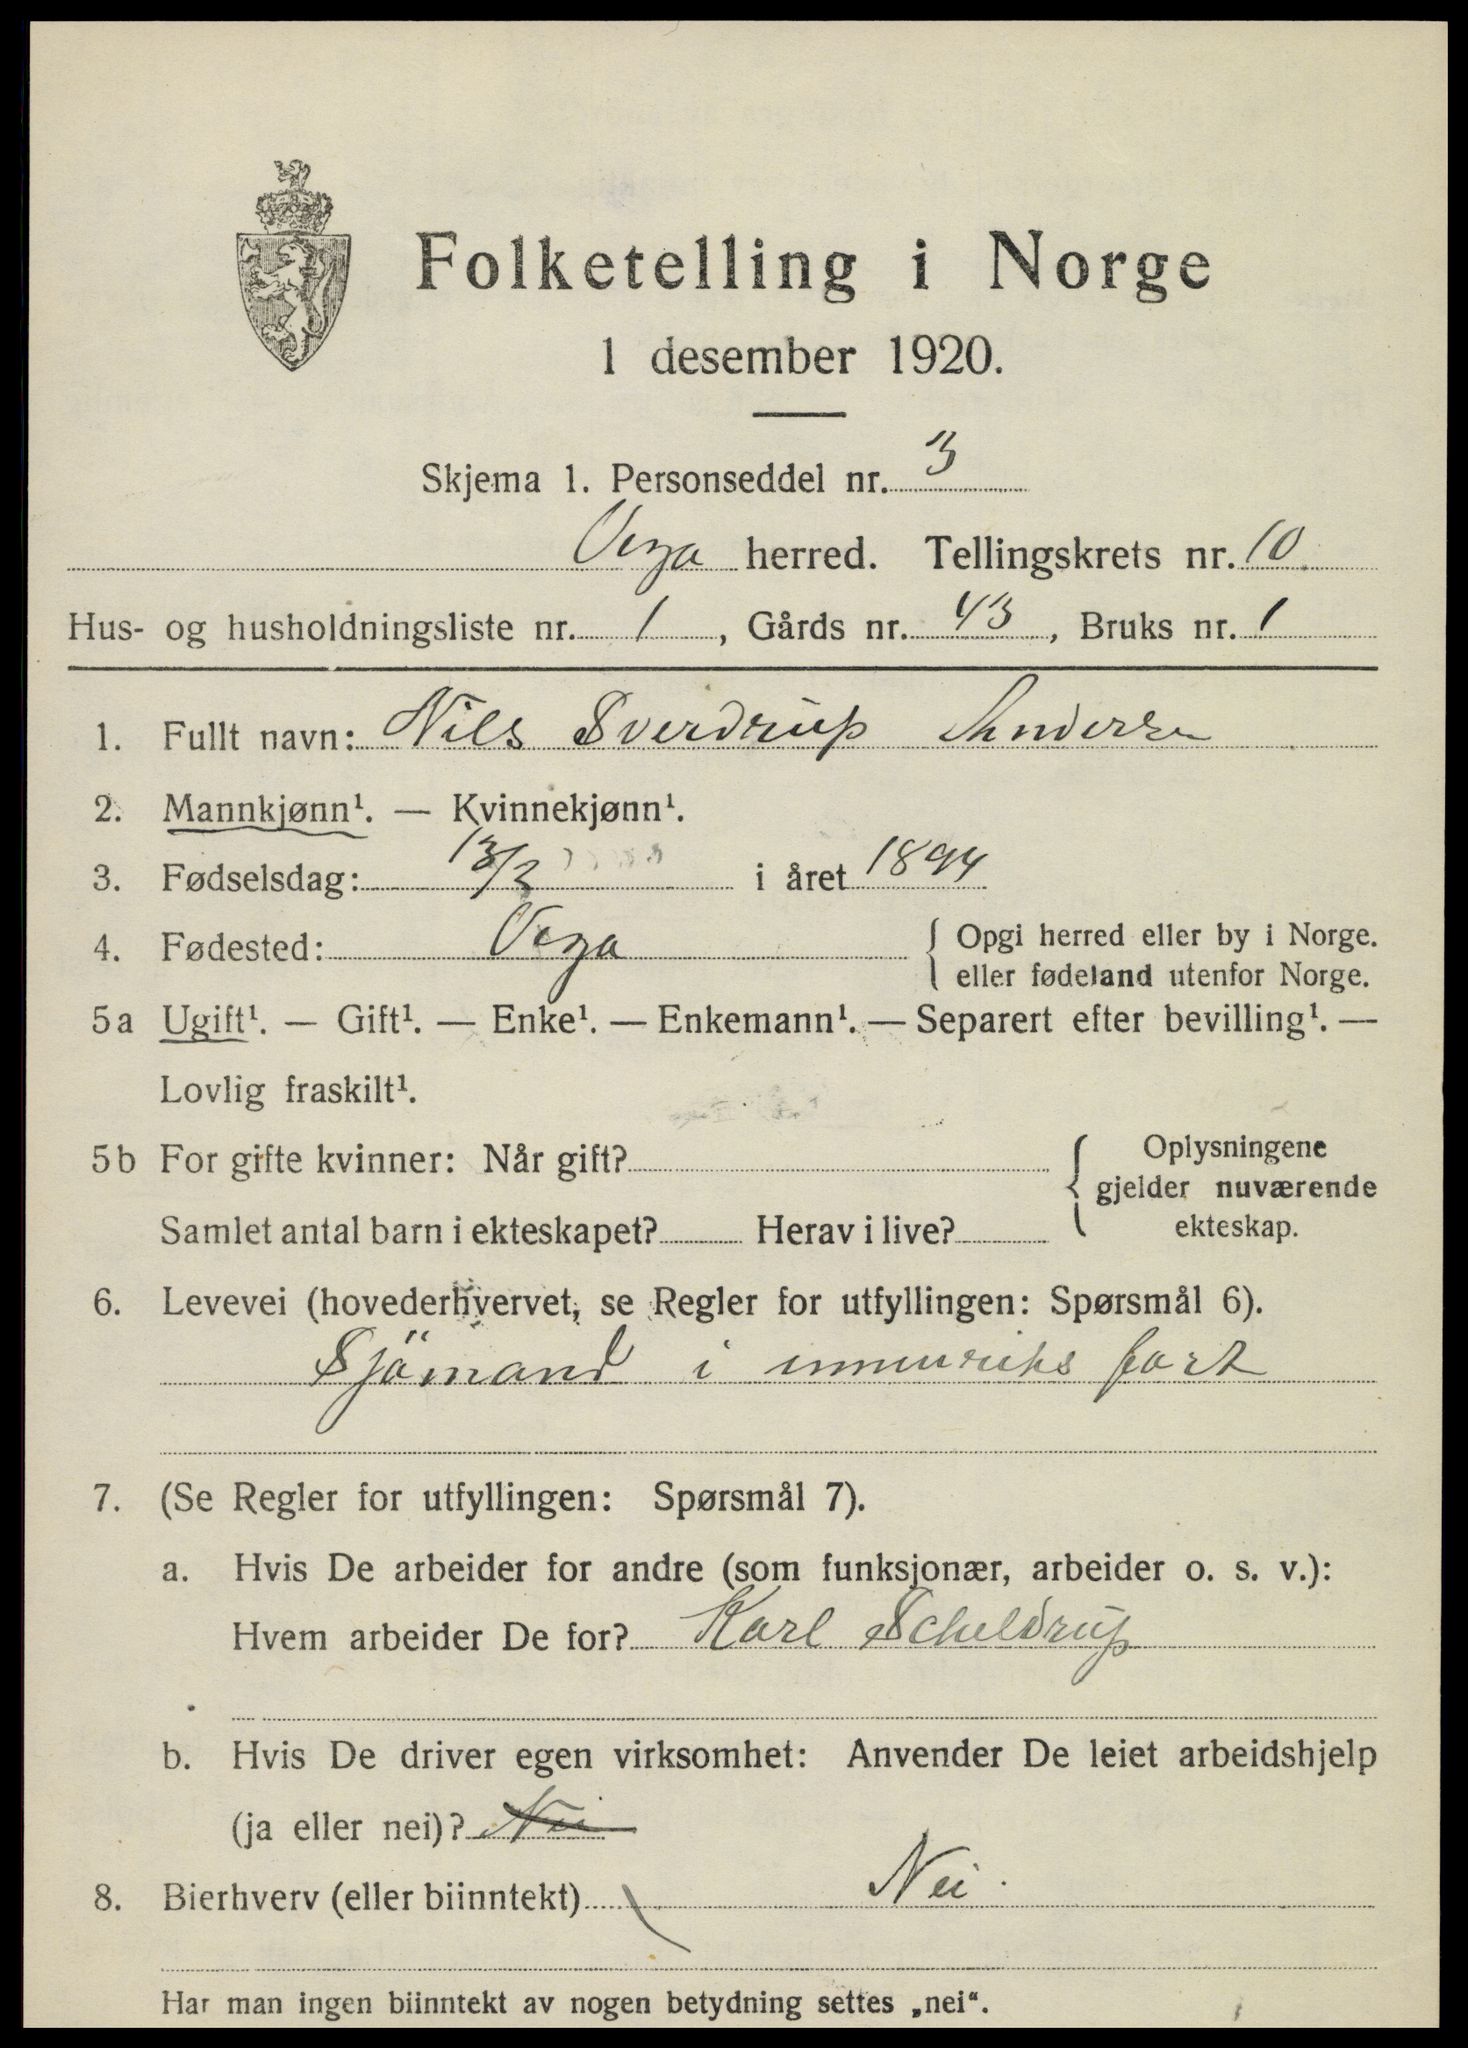 Folketelling i Norge
1 desember 1920.
Skjema 1. Personseddel nr. 3
Vega herred. Tellingskrets nr. 10
Hus- og husholdningsliste nr. 1, Gårds nr. 43, Bruks nr. 1
1. Fullt navn: Nils Sverdrup Andersen
2. Mannkjønn¹. — Kvinnekjønn¹.
3. Fødselsdag: 13/2 i året 1894
4. Fødested: Vega { Opgi herred eller by i Norge.
eller fødeland utenfor Norge.
5a Ugift¹. — Gift¹. — Enke¹. — Enkemann¹. — Separert efter bevilling¹. —
Lovlig fraskilt¹.
5b For gifte kvinner: Når gift? { Oplysningene
gjelder nuværende
ekteskap.
Samlet antal barn i ekteskapet? Herav i live?
6. Levevei (hovederhvervet, se Regler for utfyllingen: Spørsmål 6).
Sjömand i innenriks fart
7. (Se Regler for utfyllingen: Spørsmål 7).
a. Hvis De arbeider for andre (som funksjonær, arbeider o. s. v.):
Hvem arbeider De for? Karl Scheldrup
b. Hvis De driver egen virksomhet: Anvender De leiet arbeidshjelp
(ja eller nei)? Nei
8. Bierhverv (eller biinntekt) Nei.
Har man ingen biinntekt av nogen betydning settes „nei“.